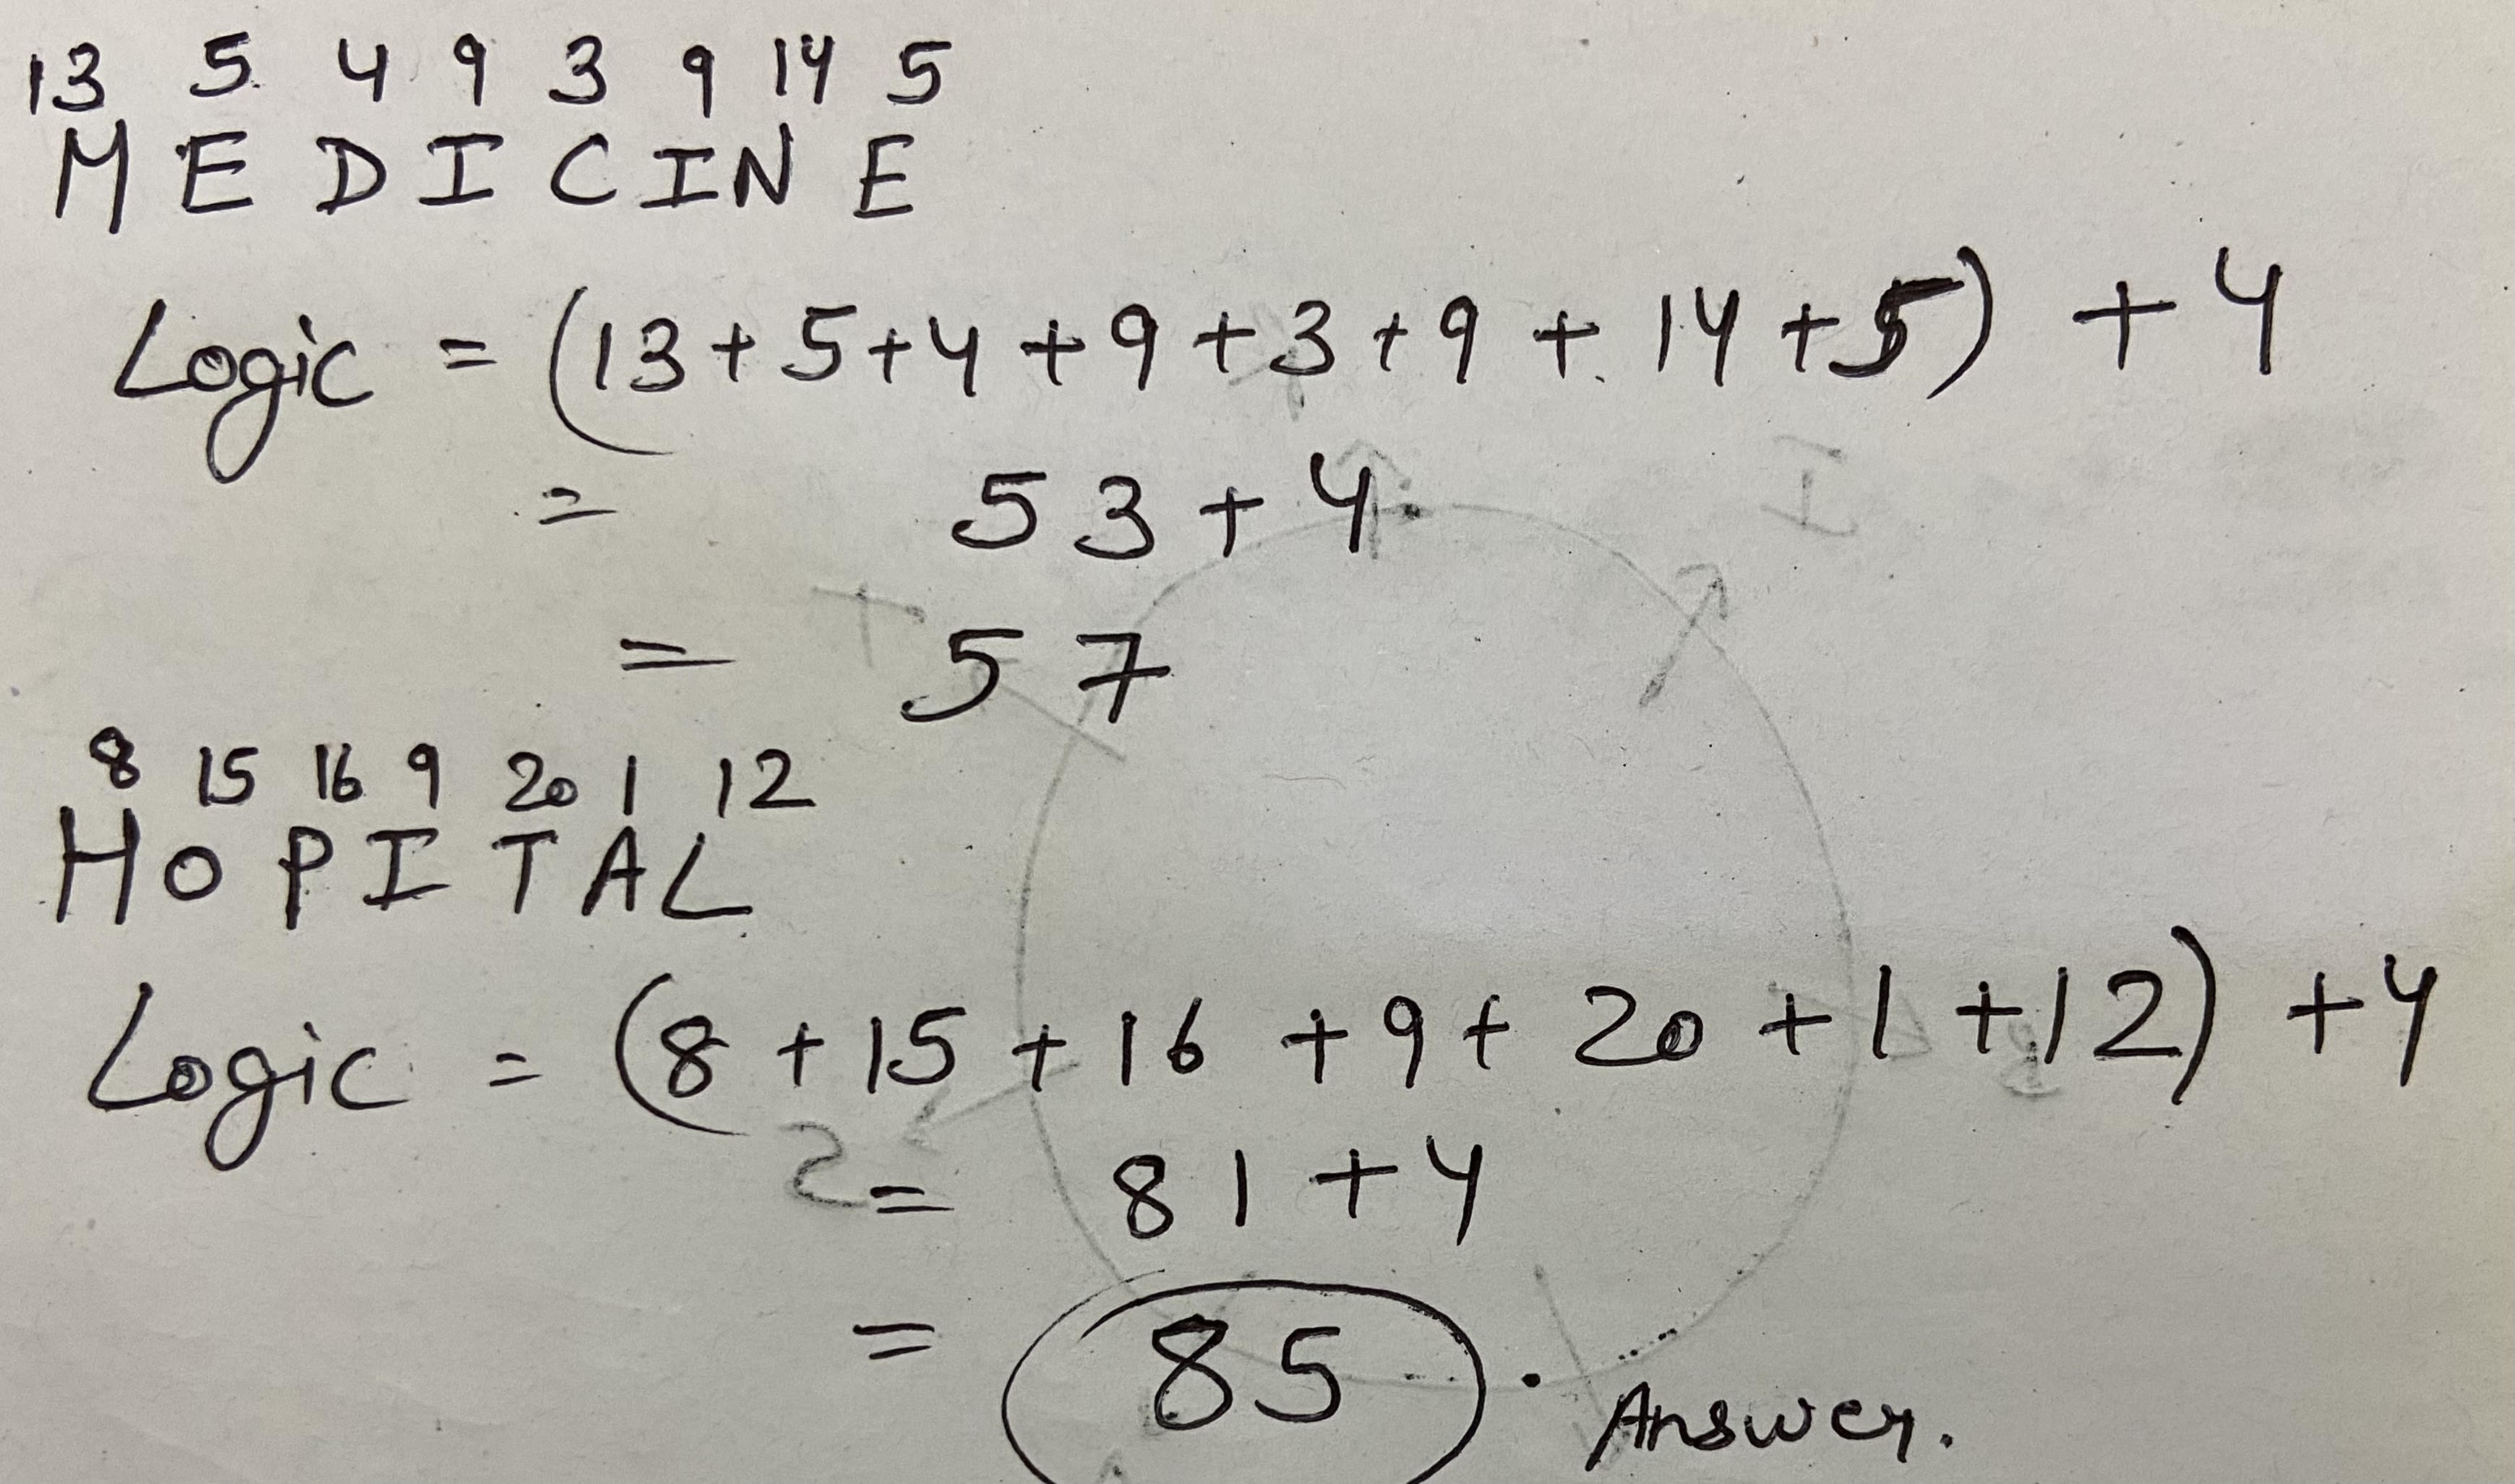 13 5 4 9 3 9 14 5
M E D I C I N E
Logic = (13+5+4+9+3+9+14+5) +4
= 53+4
= 57
8 15 16 9 20 1 12
H O P I T A L
Logic = (8+15+16+9+20+1+12) +4
= 81+4
= 85. Answer.